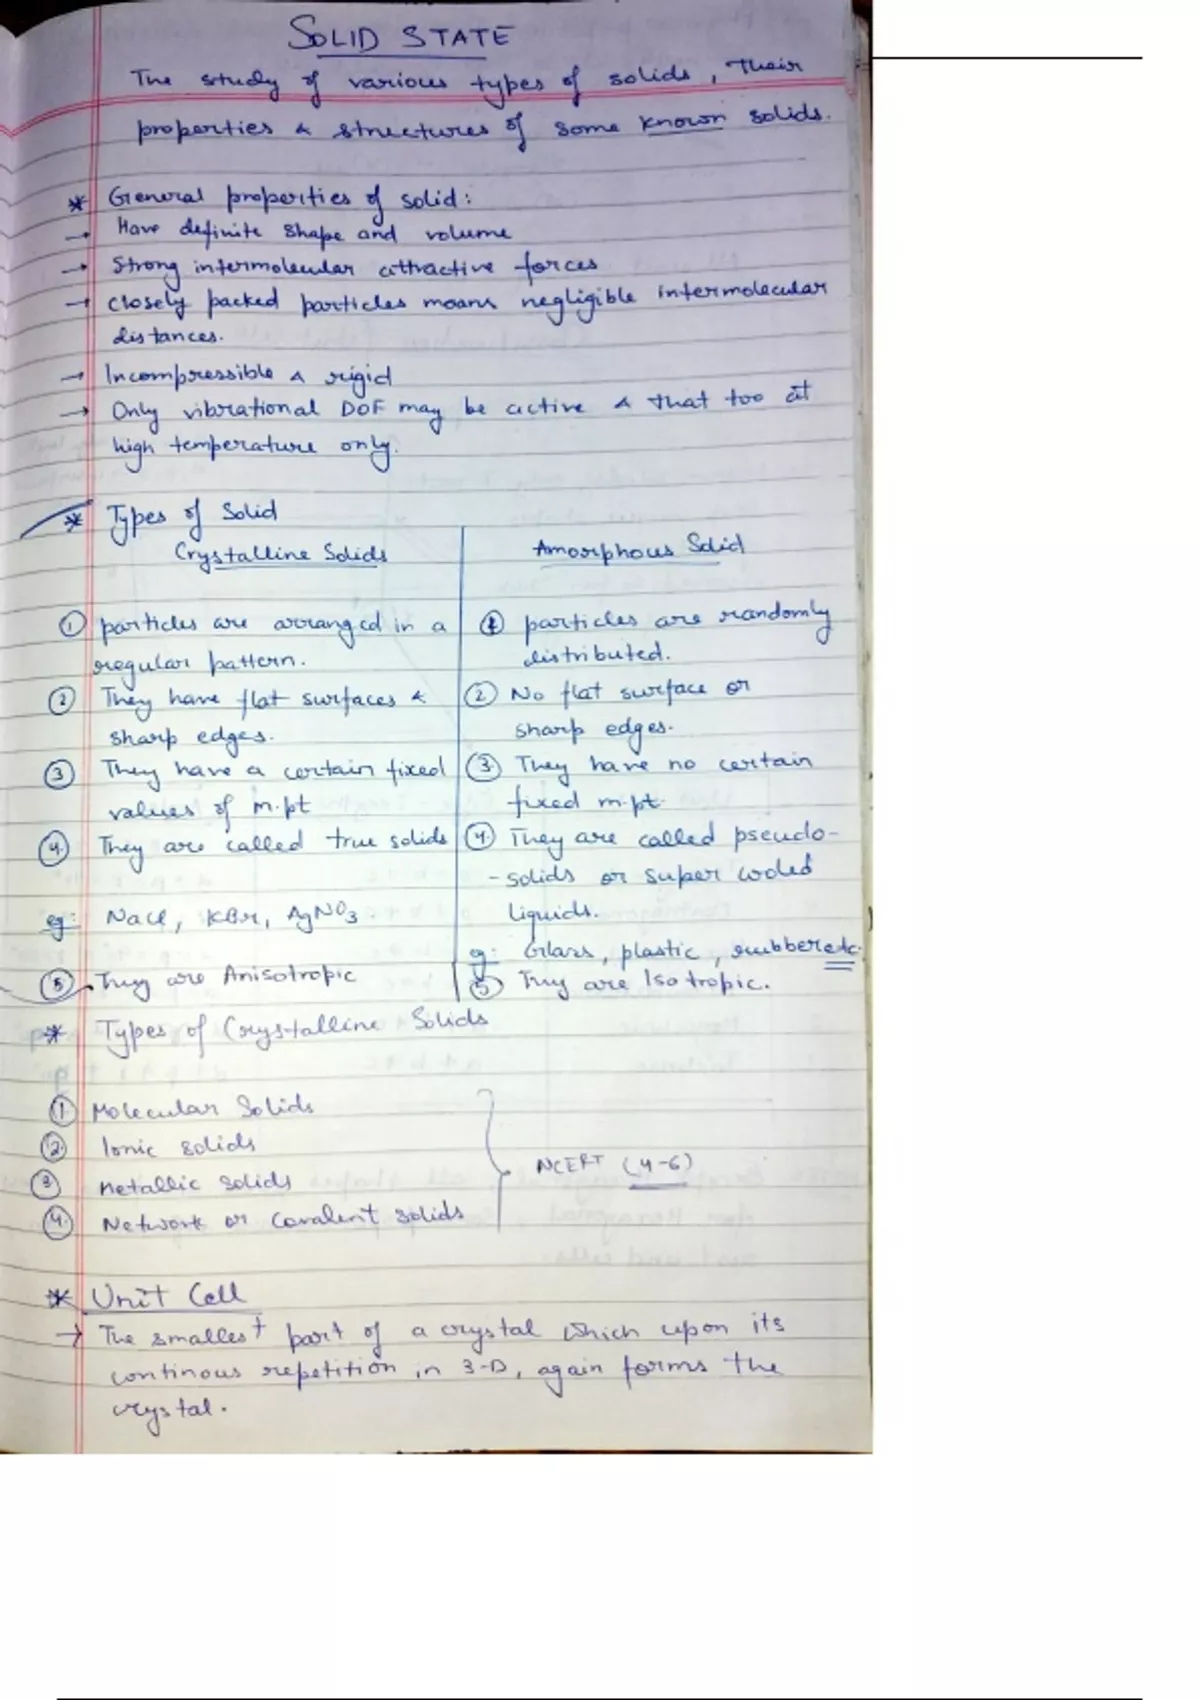 SOLID STATE
The study of various types of solids, their
properties & structures of some known solids.
* General properties of solid:
→ Have definite shape and volume
→ Strong intermolecular attractive forces
→ closely packed particles means negligible intermolecular
distances.
→ Incompressible & rigid
→ Only vibrational DOF may be active & that too at
high temperature only.
* Types of Solid
Crystalline Solids
① particles are arranged in a
regular pattern.
② They have flat surfaces &
sharp edges.
③ They have a certain fixed
values of m.pt
④ They are called true solids
eg: NaCl, KBr, AgNO3.
⑤ They are Anisotropic
Amorphous Solid
① particles are randomly
distributed.
② No flat surface or
sharp edges.
③ They have no certain
fixed m.pt.
④ They are called pseudo-
-solids or super cooled
liquids.
eg: Glass, plastic, rubber etc.
⑤ They are Isotropic.
* Types of Crystalline Solids
① Molecular Solids
② Ionic solids
③ Metallic solids
④ Network or Covalent solids
NCERT (4-6)
* Unit Cell
→ The smallest part of a crystal which upon its
continous repetition in 3-D, again forms the
crystal.